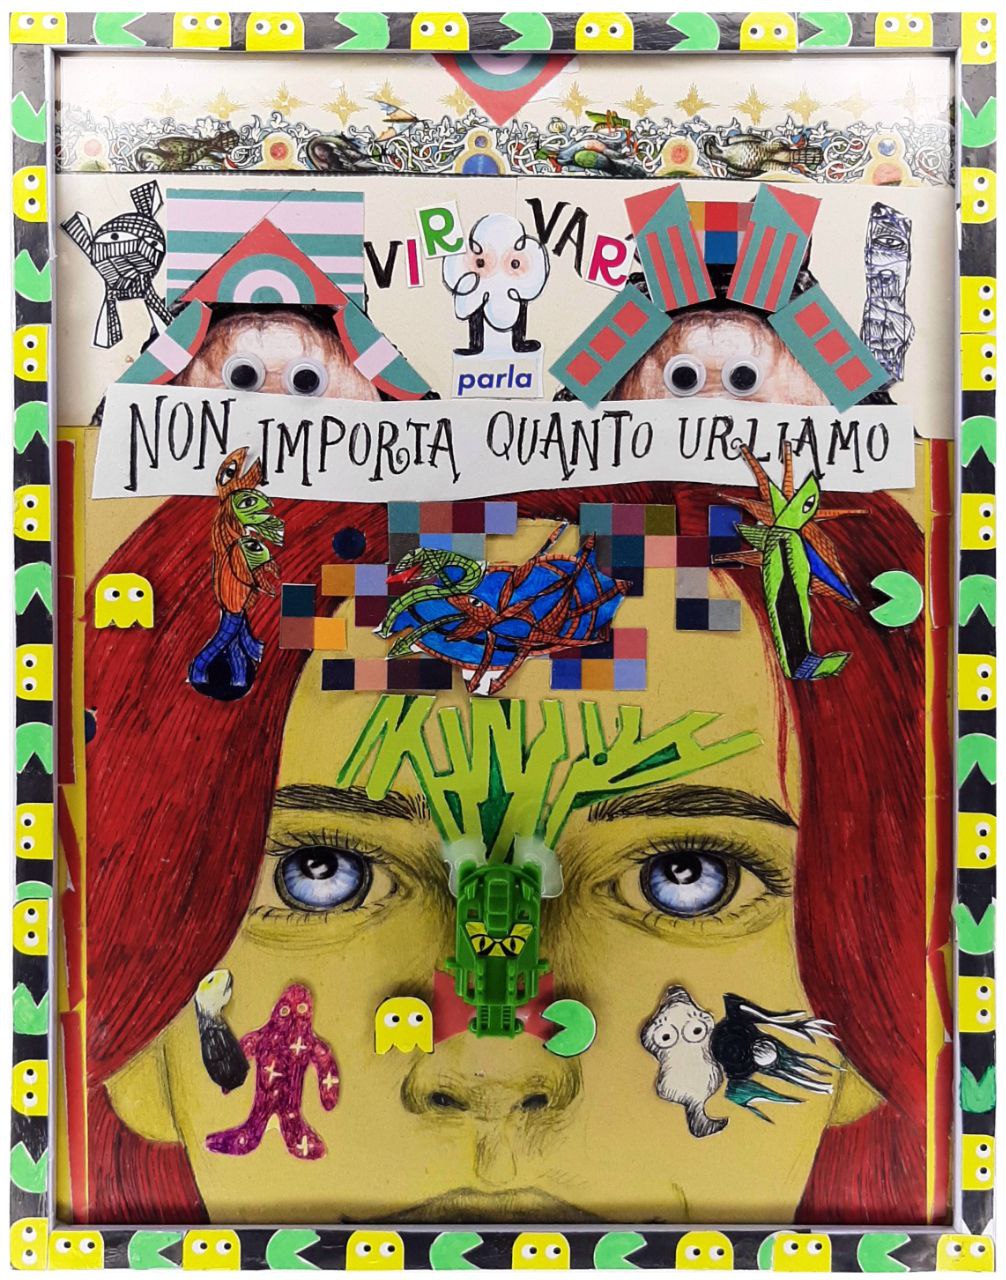 VIR VAR
parla
NON IMPORTA QUANTO URLIAMO